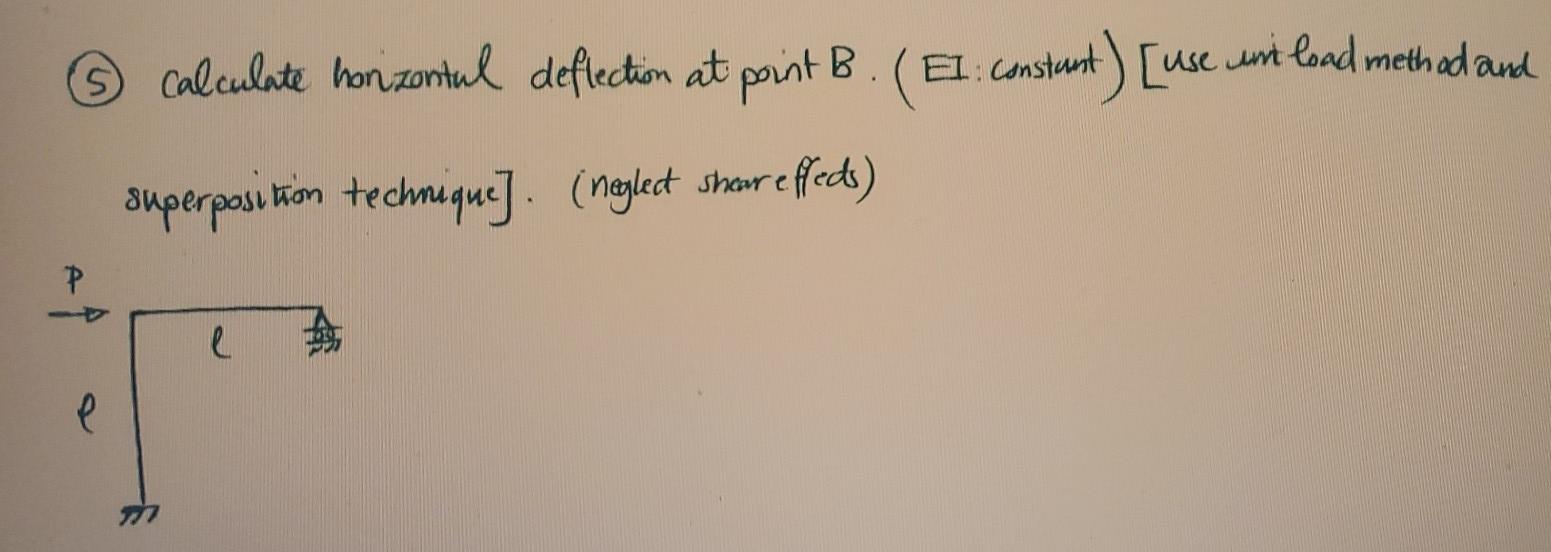 ⑤ Calculate horizontal deflection at point B. (EI: constant) [use unit load method and
superposition technique]. (neglect shear effects)
P
l
l